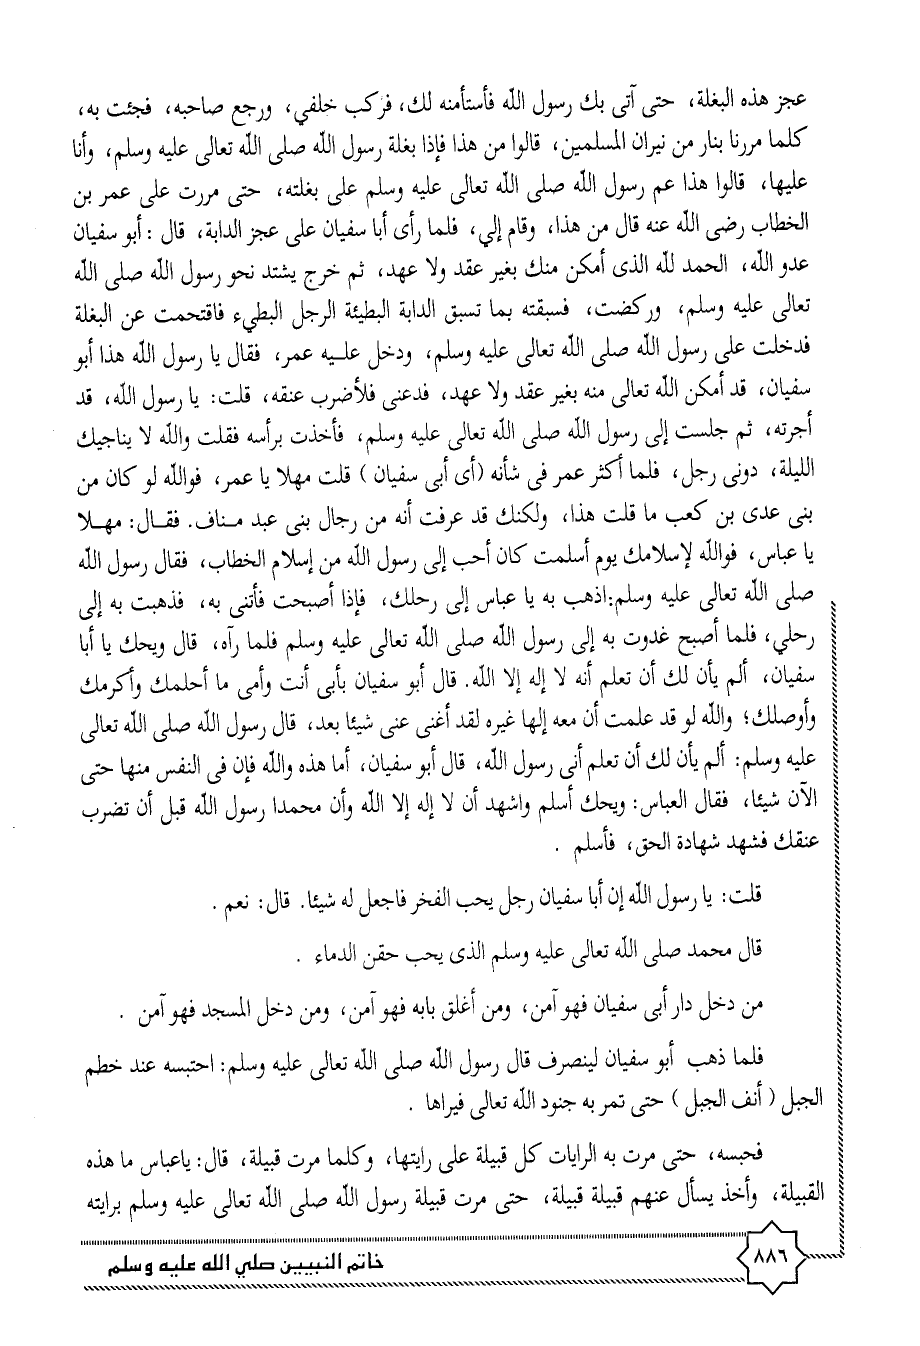 عجز هذه البغلة، حتى آتى بك رسول الله فأستأمنه لك، فركب خلفي، ورجع صاحبه، فجئت به،
كلما مررنا بنار من نيران المسلمين، قالوا من هذا فإذا بغلة رسول الله صلى الله تعالى عليه وسلم، وأنا
عليها، قالوا هذا عم رسول الله صلى الله تعالى عليه وسلم على بغلته، حتى مررت على عمر بن
الخطاب رضى الله عنه قال من هذا، وقام إلي، فلما رأى أبا سفيان على عجز الدابة، قال : أبو سفيان
عدو الله، الحمد لله الذى أمكن منك بغير عقد ولا عهد، ثم خرج يشتد نحو رسول الله صلى الله
تعالى عليه وسلم، وركضت، فسبقته بما تسبق الدابة البطيئة الرجل البطيء فاقتحمت عن البغلة
فدخلت على رسول الله صلى الله تعالى عليه وسلم، ودخل علـيه عمر، فقال يا رسول الله هذا أبو
سفيان، قد أمكن الله تعالى منه بغير عقد ولا عهد، فدعنى فلأضرب عنقه، قلت: يا رسول الله، قد
أجرته، ثم جلست إلى رسول الله صلى الله تعالى عليه وسلم، فأخذت برأسه فقلت والله لا يناجيك
الليلة، دونى رجل، فلما أكثر عمر فى شأنه (أى أبى سفيان) قلت مهلا يا عمر، فوالله لو كان من
بنى عدى بن كعب ما قلت هذا، ولكنك قد عرفت أنه من رجال بنى عبد مـناف. فقـال: مهـلا
يا عباس، فوالله لإسلامك يوم أسلمت كان أحب إلى رسول الله من إسلام الخطاب، فقال رسول الله
صلى الله تعالى عليه وسلم:اذهب به يا عباس إلى رحلك، فإذا أصبحت فأتنى به، فذهبت به إلى
رحلي، فلما أصبح غدوت به إلى رسول الله صلى الله تعالى عليه وسلم فلما رآه، قال ويحك يا أبا
سفيان، ألم يأن لك أن تعلم أنه لا إله إلا الله. قال أبو سفيان بأبى أنت وأمى ما أحلمك وأكرمك
وأوصلك؛ والله لو قد علمت أن معه إلها غيره لقد أغنى عنى شيئا بعد، قال رسول الله صلى الله تعالى
عليه وسلم: ألم يأن لك أن تعلم أنى رسول الله، قال أبو سفيان، أما هذه والله فإن فى النفس منها حتى
الآن شيئا، فقال العباس: ويحك أسلم واشهد أن لا إله إلا الله وأن محمدا رسول الله قبل أن تضرب
عنقك فشهد شهادة الحق، فأسلم .
قلت: يا رسول الله إن أبا سفيان رجل يحب الفخر فاجعل له شيئا. قال: نعم .
قال محمد صلى الله تعالى عليه وسلم الذى يحب حقن الدماء .
من دخل دار أبى سفيان فهو آمن، ومن أغلق بابه فهو آمن، ومن دخل المسجد فهو آمن .
فلما ذهب أبو سفيان لينصرف قال رسول الله صلى الله تعالى عليه وسلم: احتبسه عند خطم
الجبل (أنف الجبل) حتى تمر به جنود الله تعالى فيراها .
فحبسه، حتى مرت به الرايات كل قبيلة على رايتها، وكلما مرت قبيلة، قال: ياعباس ما هذه
القبيلة، وأخذ يسأل عنهم قبيلة قبيلة، حتى مرت قبيلة رسول الله صلى الله تعالى عليه وسلم برايته
٨٨٦
خاتم النبيين صلي الله عليه وسلم